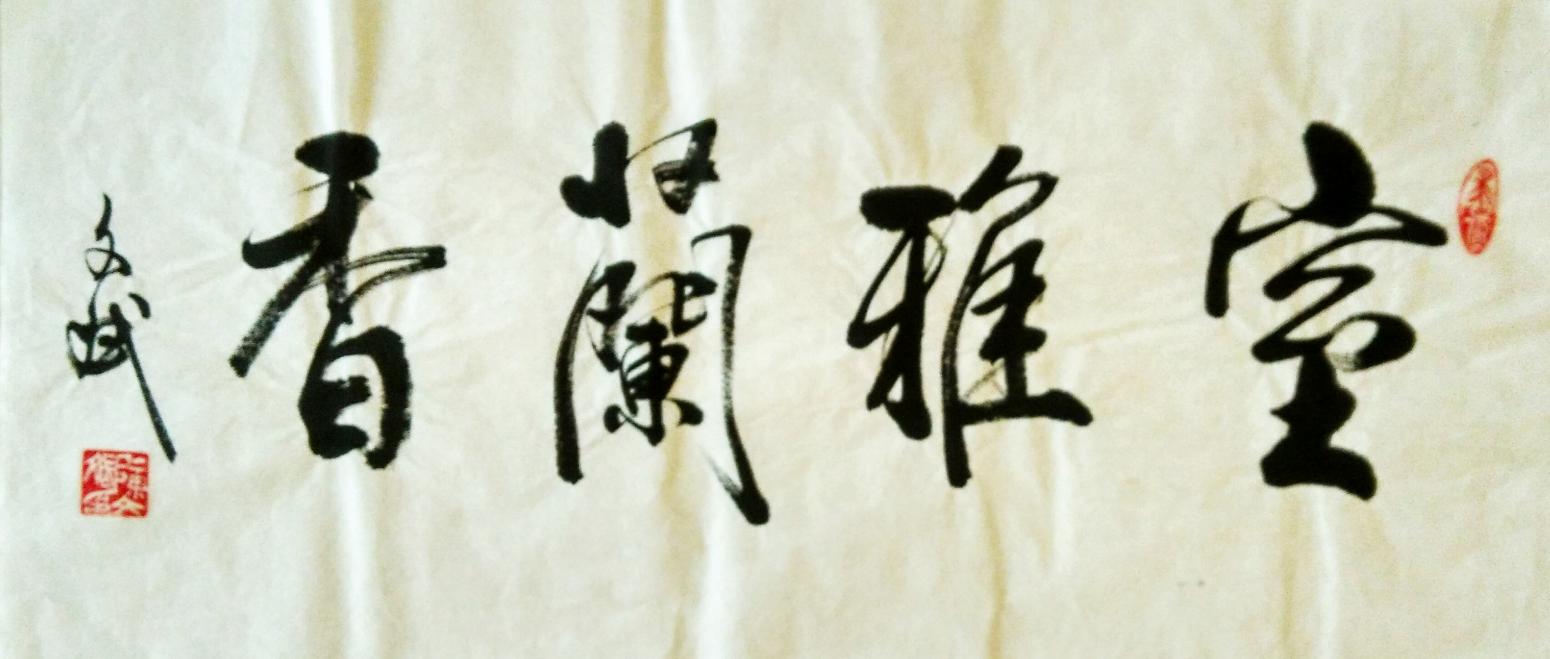 室雅蘭香
文斌